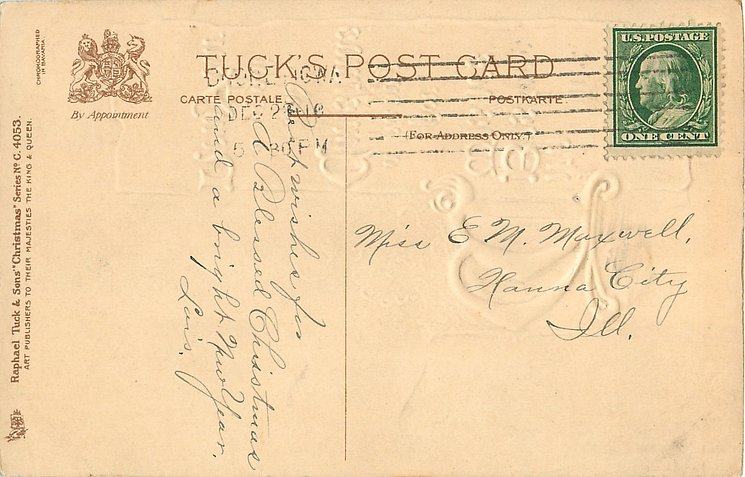 TUCK'S POST CARD
CARTE POSTALE
POSTKARTE
(FOR ADDRESS ONLY.)
By Appointment
CHROMOGRAPHED
IN BAVARIA
Raphael Tuck & Sons' "Christmas" Series No C. 4053.
ART PUBLISHERS TO THEIR MAJESTIES THE KING & QUEEN.
U.S. POSTAGE
ONE CENT
IOWA
DEC 23
PM
Best wishes for
a Blessed Christmas
and a bright New Year.
Lois.
Miss E M. Maxwell,
Hanna City
Ill.